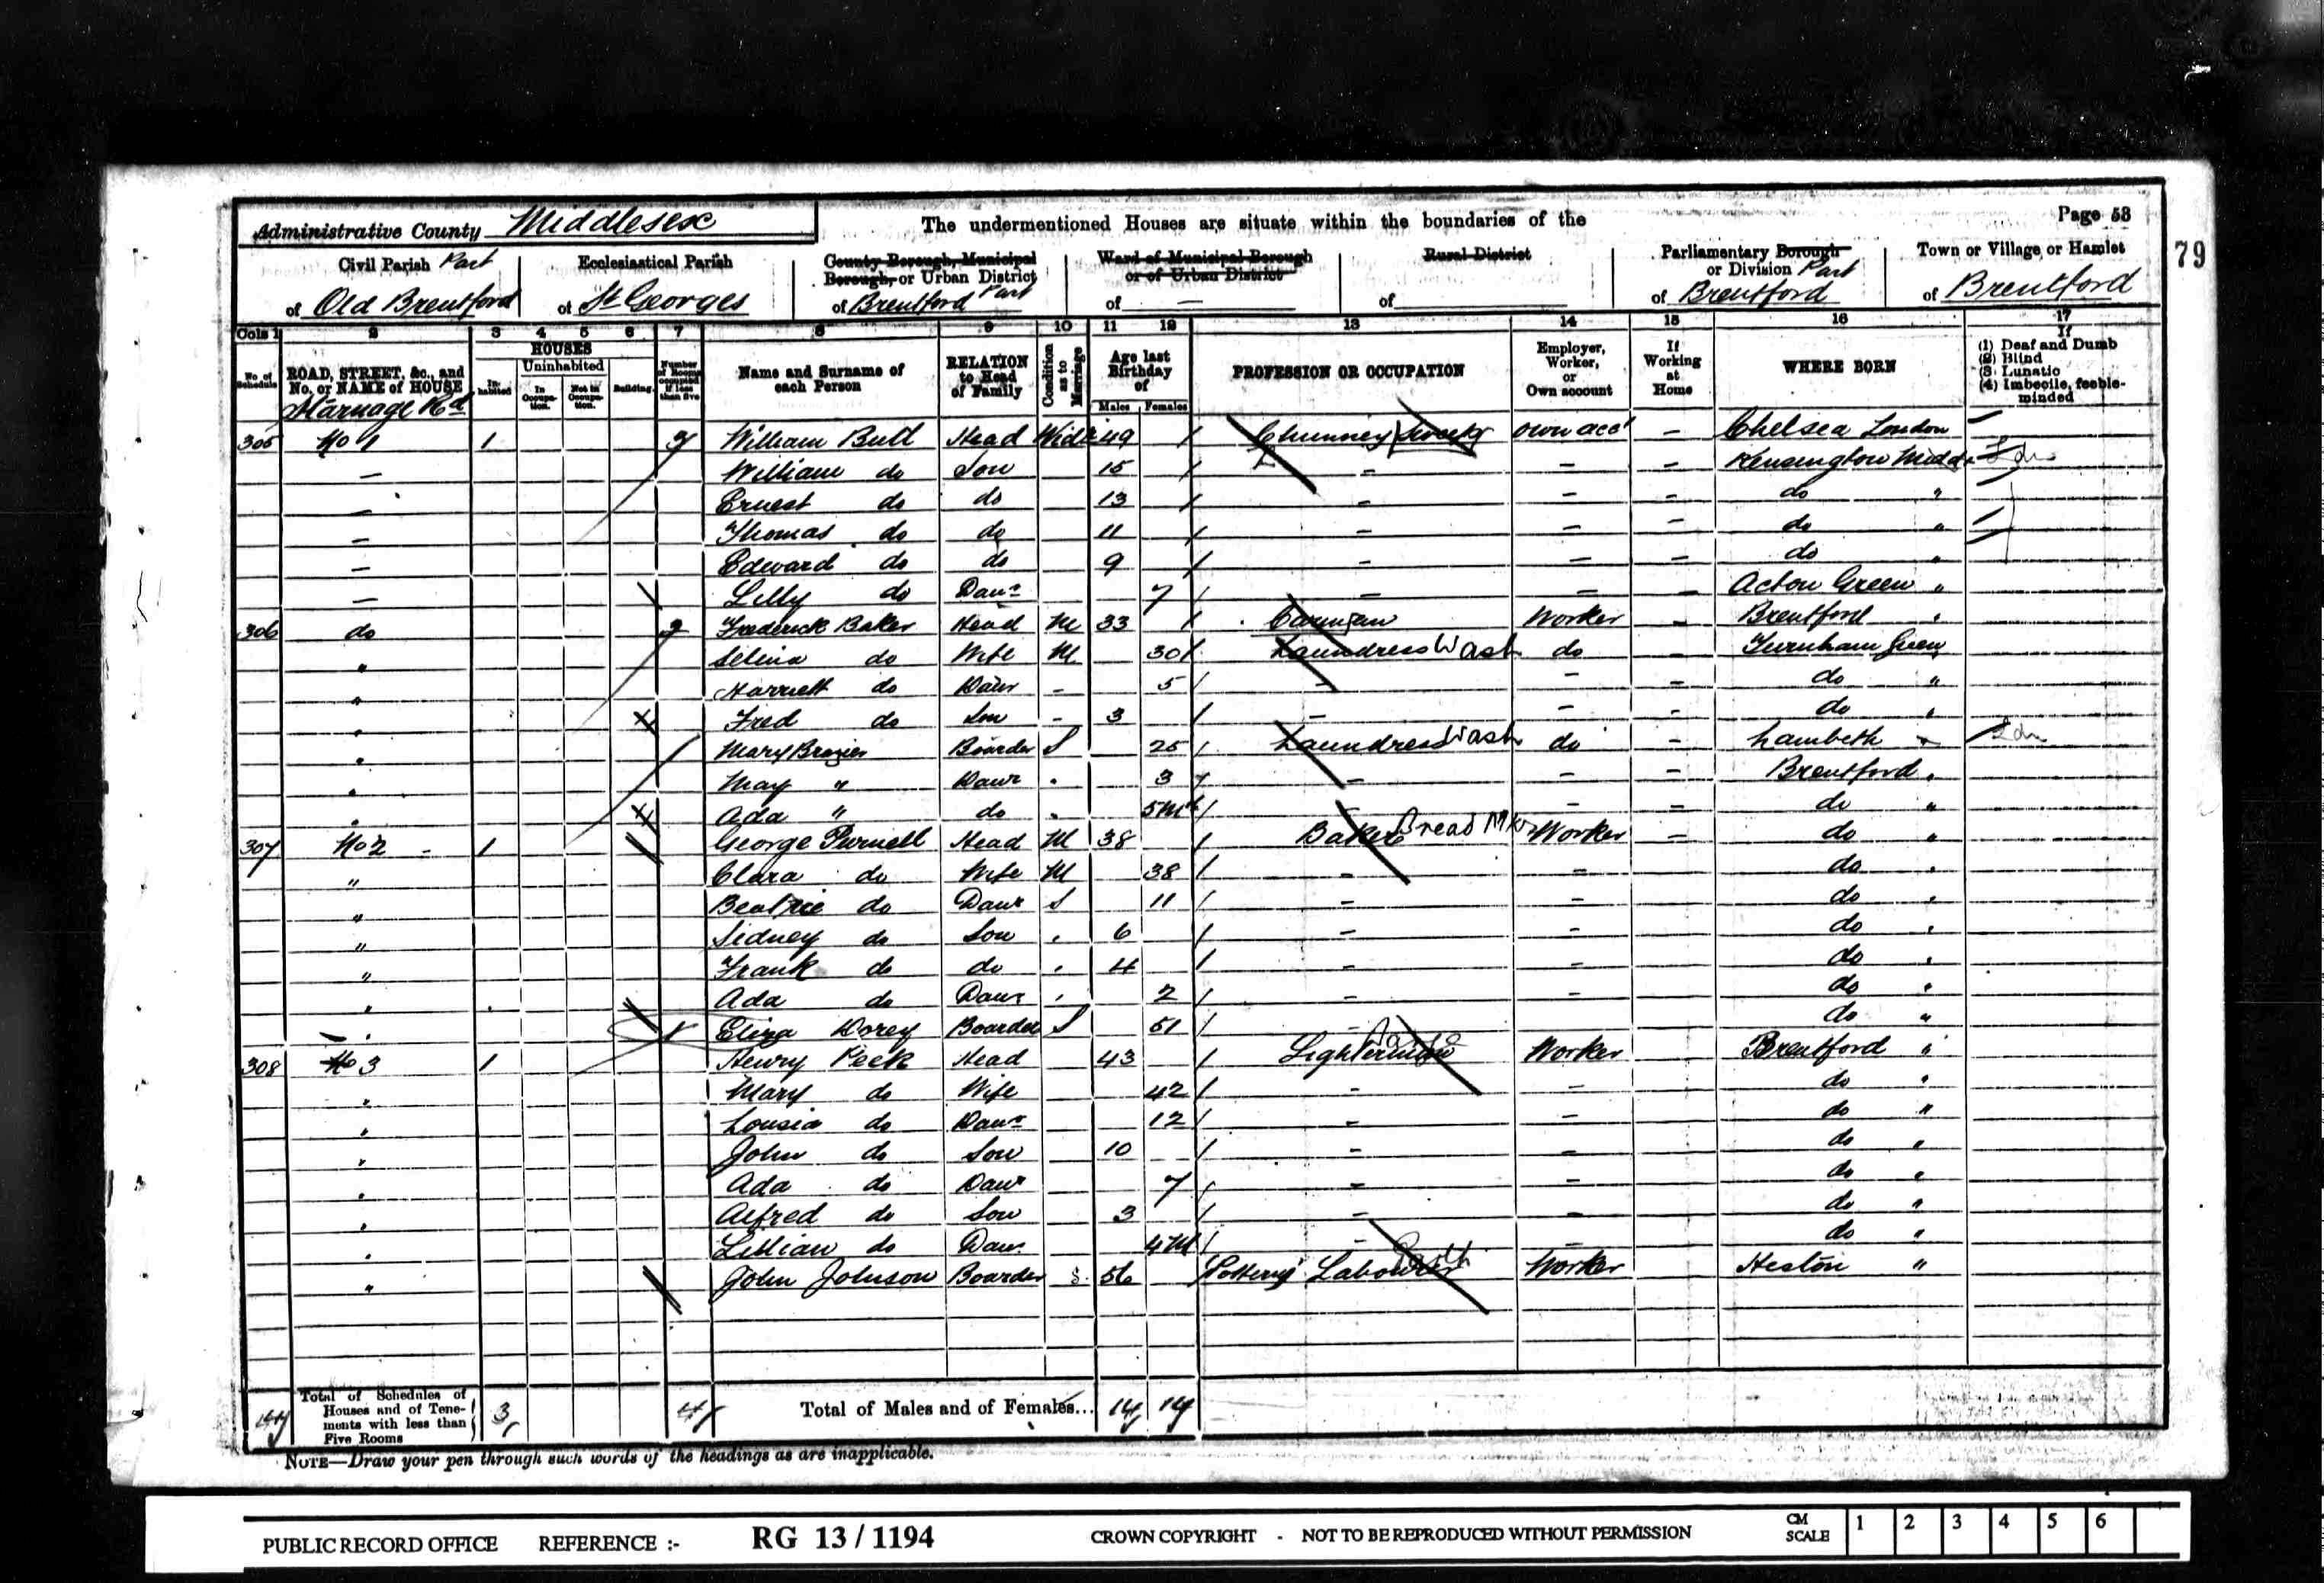 Page 53
79
Administrative County Middlesex
The undermentioned Houses are situate within the boundaries of the
Civil Parish Part of Old Brentford
Ecclesiastical Parish of St Georges
County Borough, Municipal Borough, or Urban District of Brentford Part
Ward of Municipal Borough or of Urban District of —
Rural District of
Parliamentary Borough or Division Part of Brentford
Town or Village or Hamlet of Brentford
Cols 1 2 3 4 5 6 7 8 9 10 11 12 13 14 15 16 17
No. of Schedule
ROAD, STREET, &c., and No. or NAME of HOUSE
HOUSES
Inhabited
Uninhabited
In Occupation.
Not in Occupation.
Building.
Number of Rooms occupied if less than five
Name and Surname of each Person
RELATION to Head of Family
Condition as to Marriage
Age last Birthday of
Males Females
PROFESSION OR OCCUPATION
Employer, Worker, or Own account
If Working at Home
WHERE BORN
If
(1) Deaf and Dumb
(2) Blind
(3) Lunatic
(4) Imbecile, feeble-minded
Rd
305 No 1 1 3 William Bull Head Widr 49 Chimney Sweep own acct — Chelsea London
— William do Son 15 — — — Kensington Midd
— Ernest do do 13 — — — do "
— Thomas do do 11 — — — do "
— Edward do do 9 — — — do "
— Lilly do Daur 7 — — — Acton Green "
306 do Frederick Baker Head M 33 Carman Worker — Brentford "
" Selina do Wife M 30 Laundress Wash do — Turnham Green
" Harriett do Daur - 5 — — — do "
" Fred do Son - 3 — — — do "
" Mary Brazier Boarder S 25 Laundress Wash do — Lambeth
" May " Daur 3 — — — Brentford "
" Ada " do 5 Mth — — — do "
307 No 2 1 George Purnell Head M 38 Baker Bread Mkr Worker — do "
" Clara do Wife M 38 — — do "
" Beatrice do Daur S 11 — — do "
" Sidney do Son " 6 — — do "
" Frank do do " 4 — — do "
" Ada do Daur " 2 — — do "
" Eliza Dorey Boarder S 51 — do "
308 No 3 1 Henry Peek Head 43 Lighterman Worker Brentford "
" Mary do Wife 42 — — do "
" Lousia do Daur 12 — — do "
" John do Son 10 — — do "
" Ada do Daur 7 — — do "
" Alfred do Son 3 — — do "
" Lillian do Daur 4 M — — do "
" John Johnson Boarder S 56 Pottery Labourer Worker Heston "
Total of Schedules of Houses and of Tenements with less than Five Rooms 3
Total of Males and of Females... 14 14
NOTE—Draw your pen through such words of the headings as are inapplicable.
PUBLIC RECORD OFFICE REFERENCE :- RG 13 / 1194 CROWN COPYRIGHT - NOT TO BE REPRODUCED WITHOUT PERMISSION CM SCALE 1 2 3 4 5 6